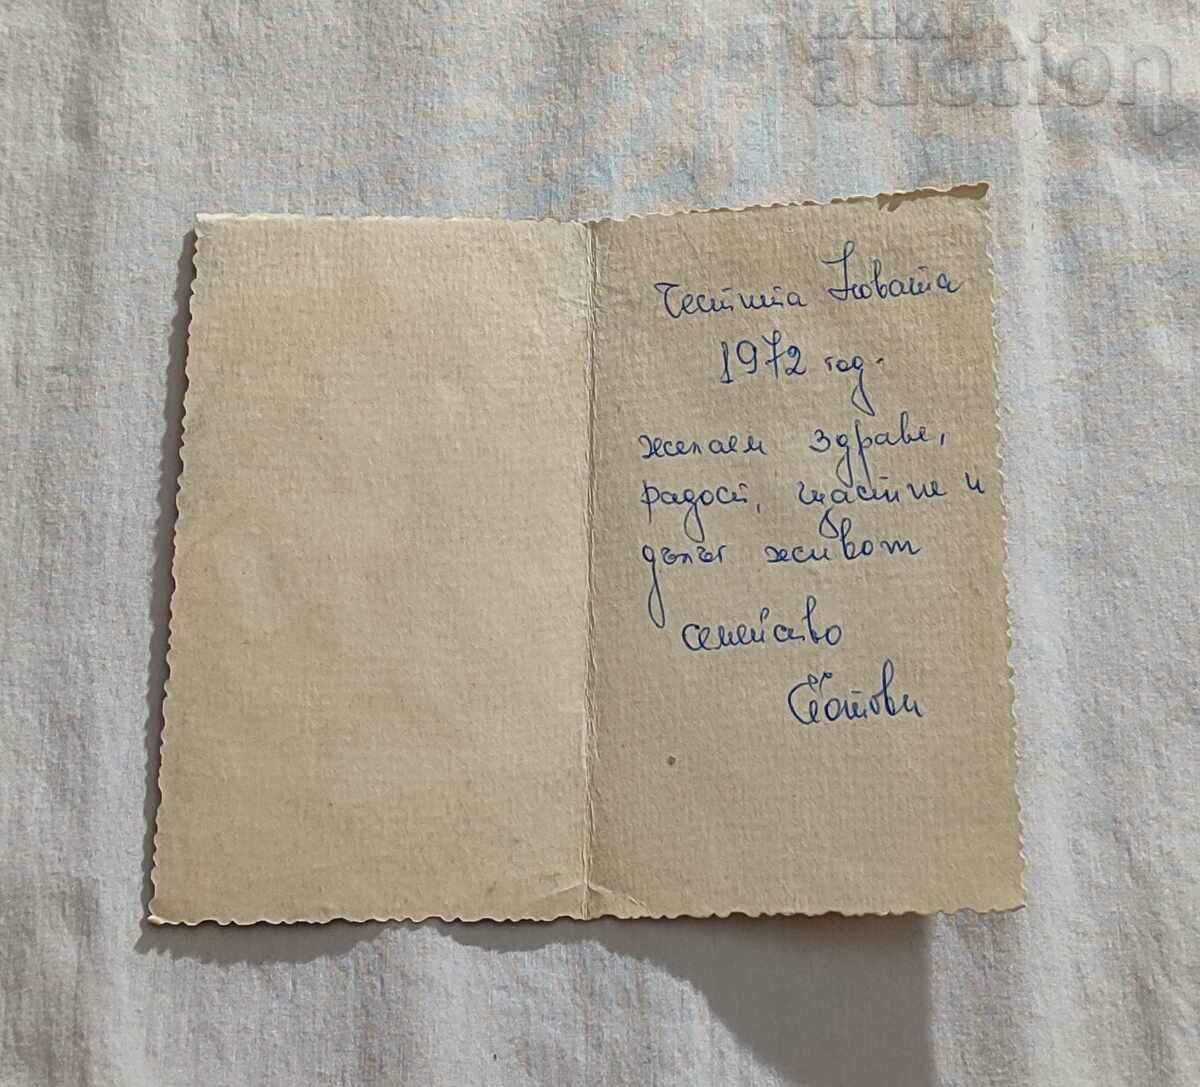 BALKAN
auction
Честита Новата
1972 год.
желаем здраве,
радост, щастие и
дълъг живот
семейство